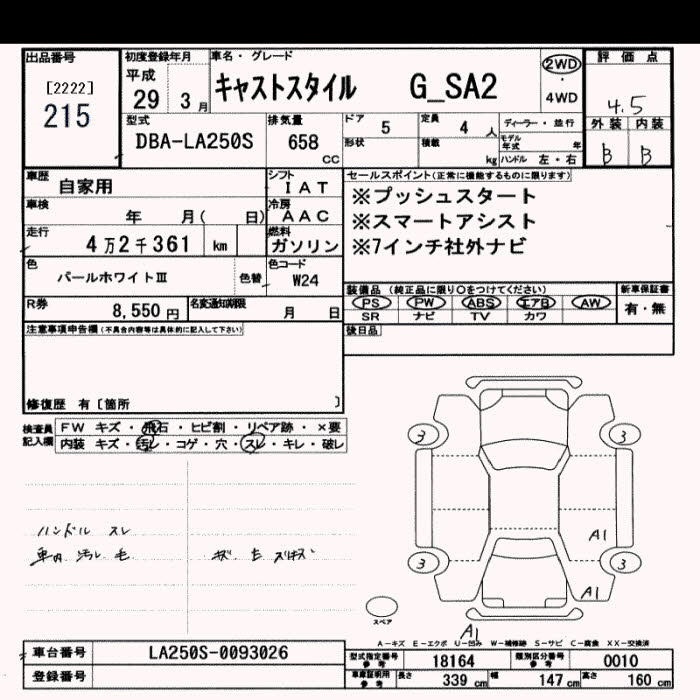 出品番号 初度登録年月 車名・グレード 評価点
[2222]
215
平成 29 3月 キャストスタイル G_SA2 2WD・4WD 4.5
型式 排気量 ドア 定員 ディーラー・並行 外装 内装
DBA-LA250S 658 CC 5 4人 モデル年式 年 B B
形状 積載 kg ハンドル 左・右
車歴 自家用 シフト IAT セールスポイント(正常に機能するものに限ります)
※プッシュスタート
車検 年 月( 日) 冷房 AAC ※スマートアシスト
走行 4万2千361 km 燃料 ガソリン ※7インチ社外ナビ
色 パールホワイトⅢ 色替 色コード W24
装備品(純正品に限り○をつけてください) 新車保証書
R券 8,550円 名変通知期限 月 日 PS PW ABS エアB AW 有・無
SR ナビ TV カワ
注意事項申告欄(不具合内容等は具体的に記入して下さい) 後日品
修復歴 有[箇所 ]
検査員記入欄 FW キズ・飛石・ヒビ割・リペア跡・×要
内装 キズ・汚レ・コゲ・穴・スレ・キレ・破レ
3 3
ハンドル スレ
車内 汚レ 毛
A1
3 3
A1
スペア
A1
A-キズ E-エクボ U-凹み W-補修跡 S-サビ C-腐食 XX-交換済
車台番号 LA250S-0093026 型式指定番号 参考 18164 類別区分番号 参考 0010
登録番号 車庫証明用 参考 長さ 339 cm 幅 147 cm 高さ 160 cm